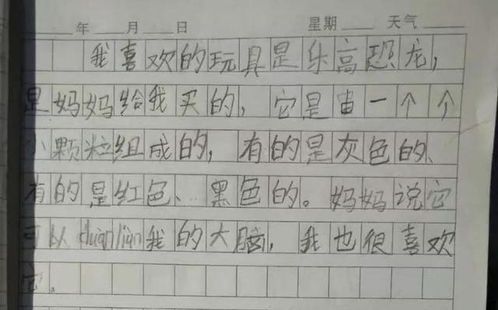 年 月 日 星期 天气
我喜欢的玩具是乐高恐龙，
是妈妈给我买的，它是由一个个
小颗粒组成的，有的是灰色的、
有的是红色、黑色的。妈妈说它
可以duanlian我的大脑，我也很喜欢
它。